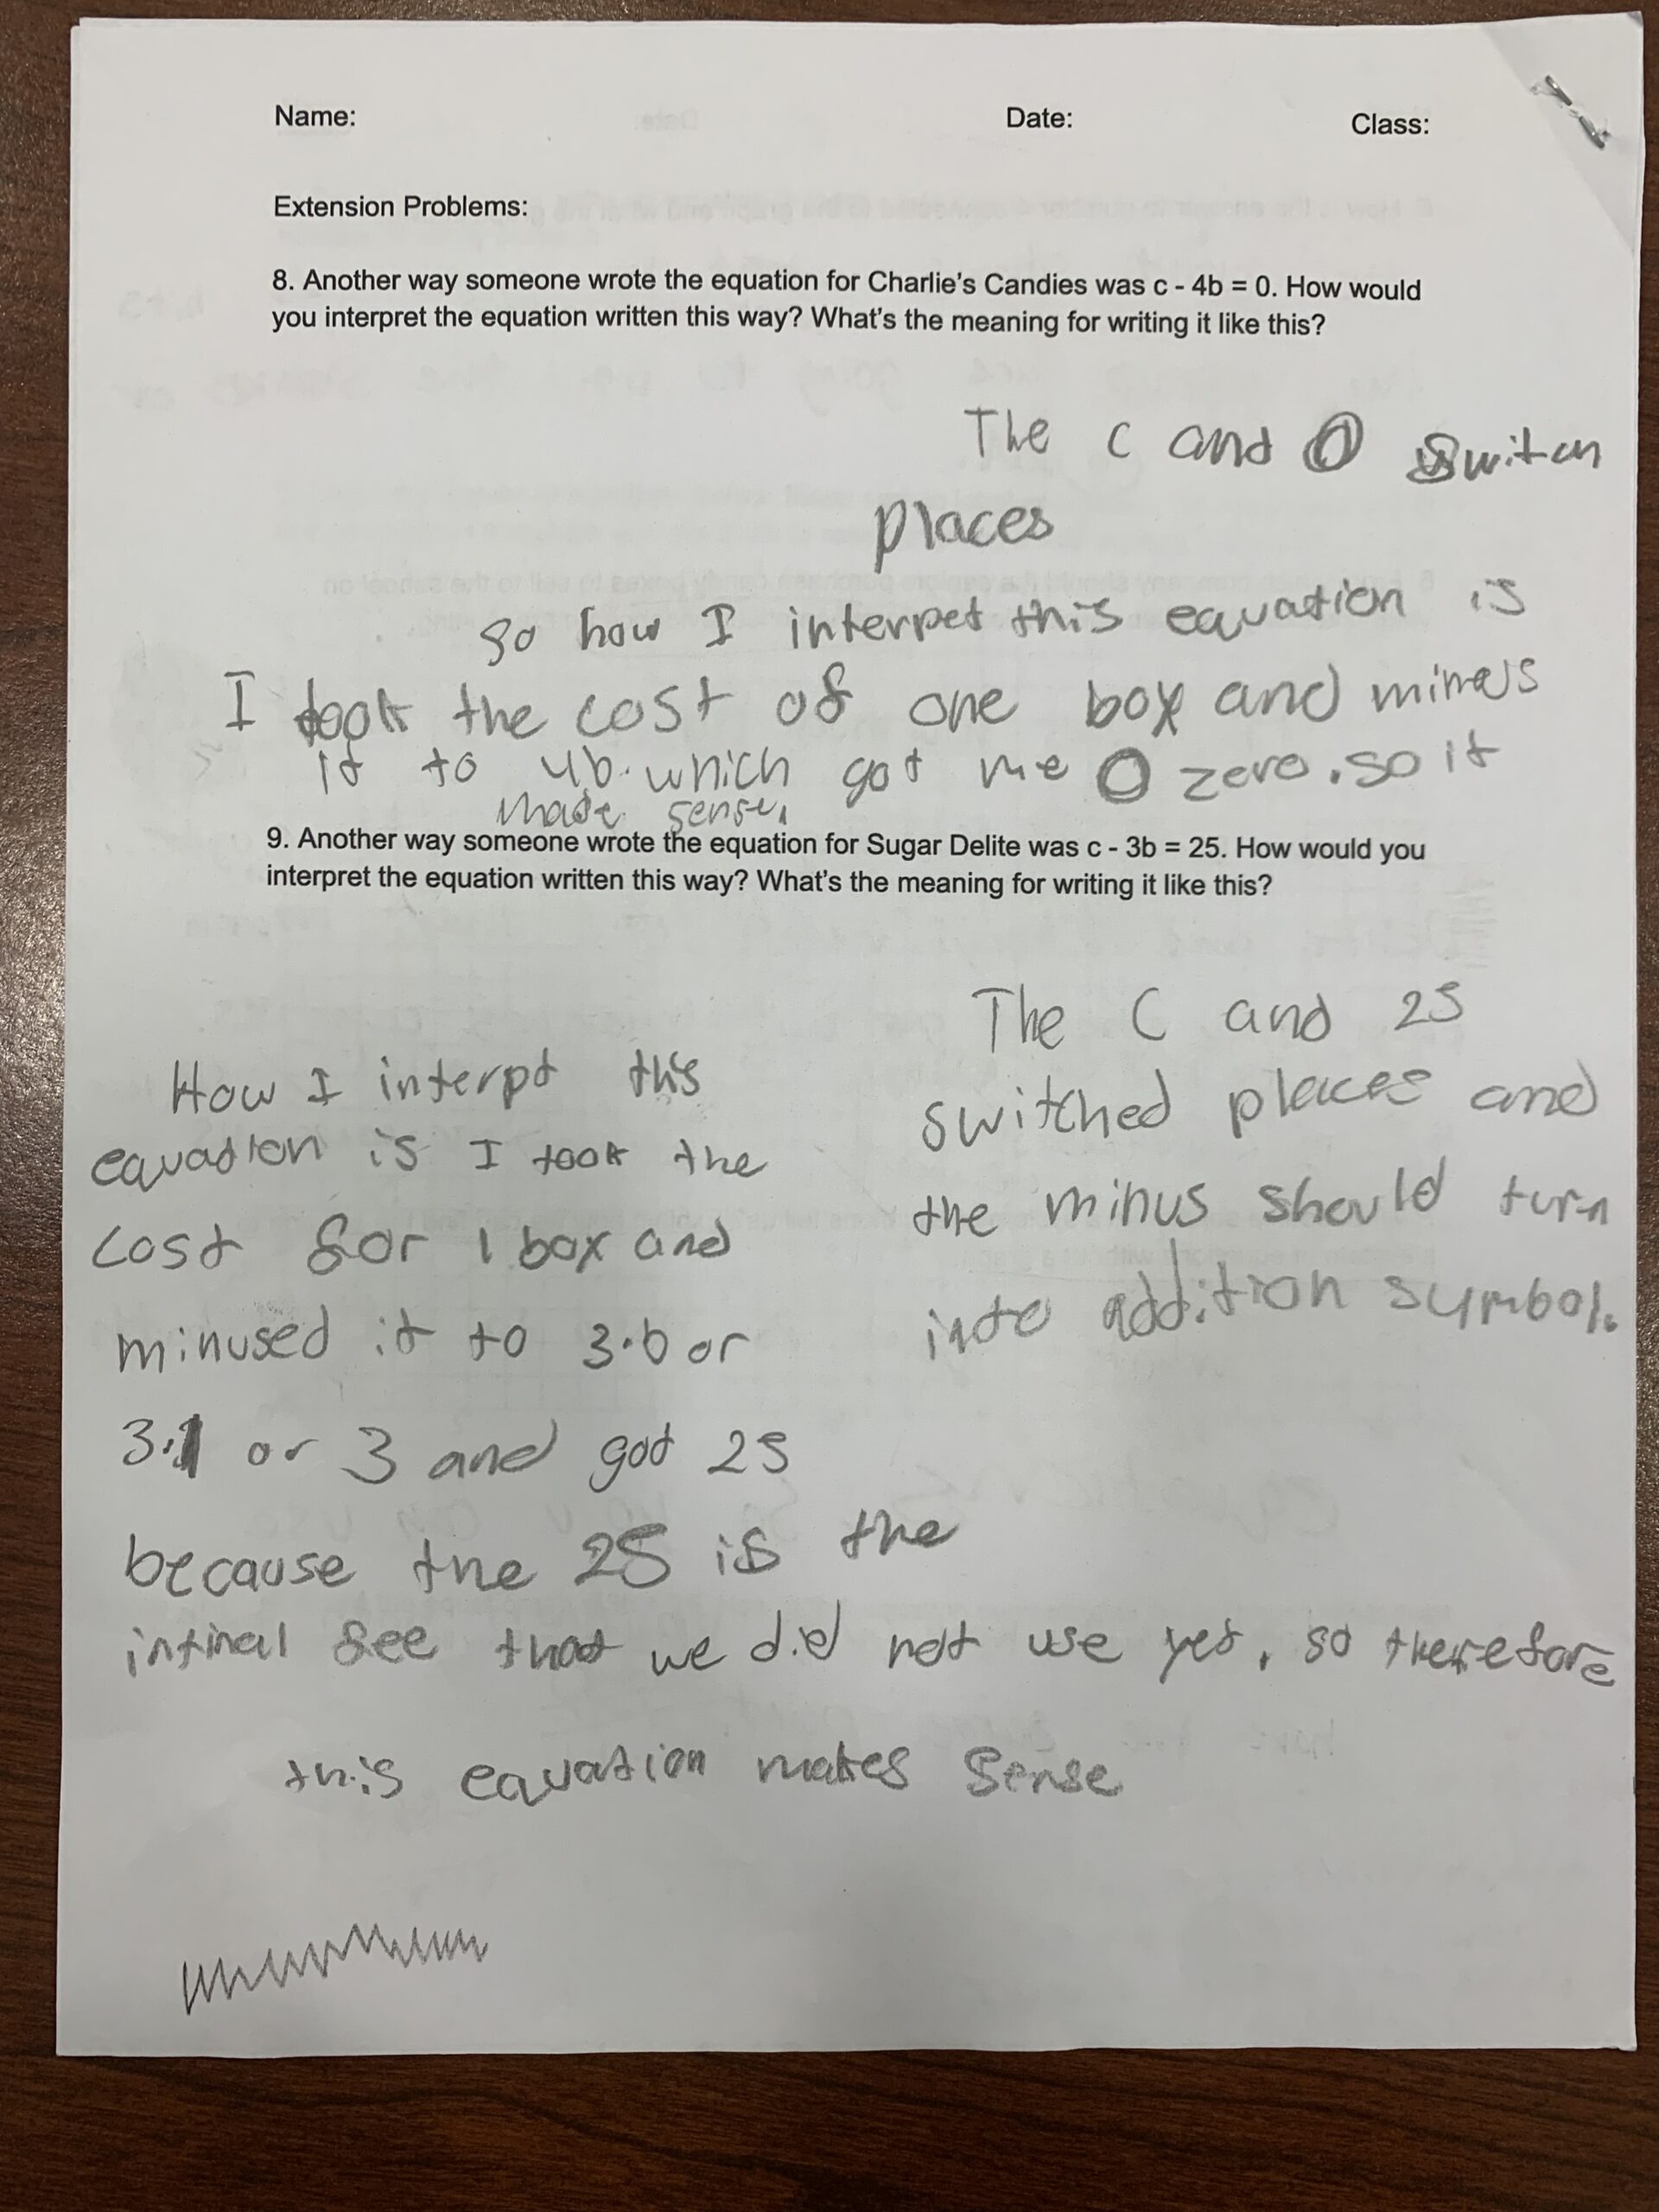 Name: Date: Class:
Extension Problems:
8. Another way someone wrote the equation for Charlie's Candies was c - 4b = 0. How would
you interpret the equation written this way? What's the meaning for writing it like this?
The C and 0 switch
places
so how I interpet this equation is
I took the cost of one box and mines
it to 4b. which got me 0 zero. so it
made sense.
9. Another way someone wrote the equation for Sugar Delite was c - 3b = 25. How would you
interpret the equation written this way? What's the meaning for writing it like this?
The C and 25
switched places and
the minus should turn
into addition symbol.
How I interpt this
equation is I took the
cost for 1 box and
minused it to 3·b or
3·1 or 3 and got 25
because the 25 is the
intinal fee that we did not use yet, so therefore
this equation makes sense